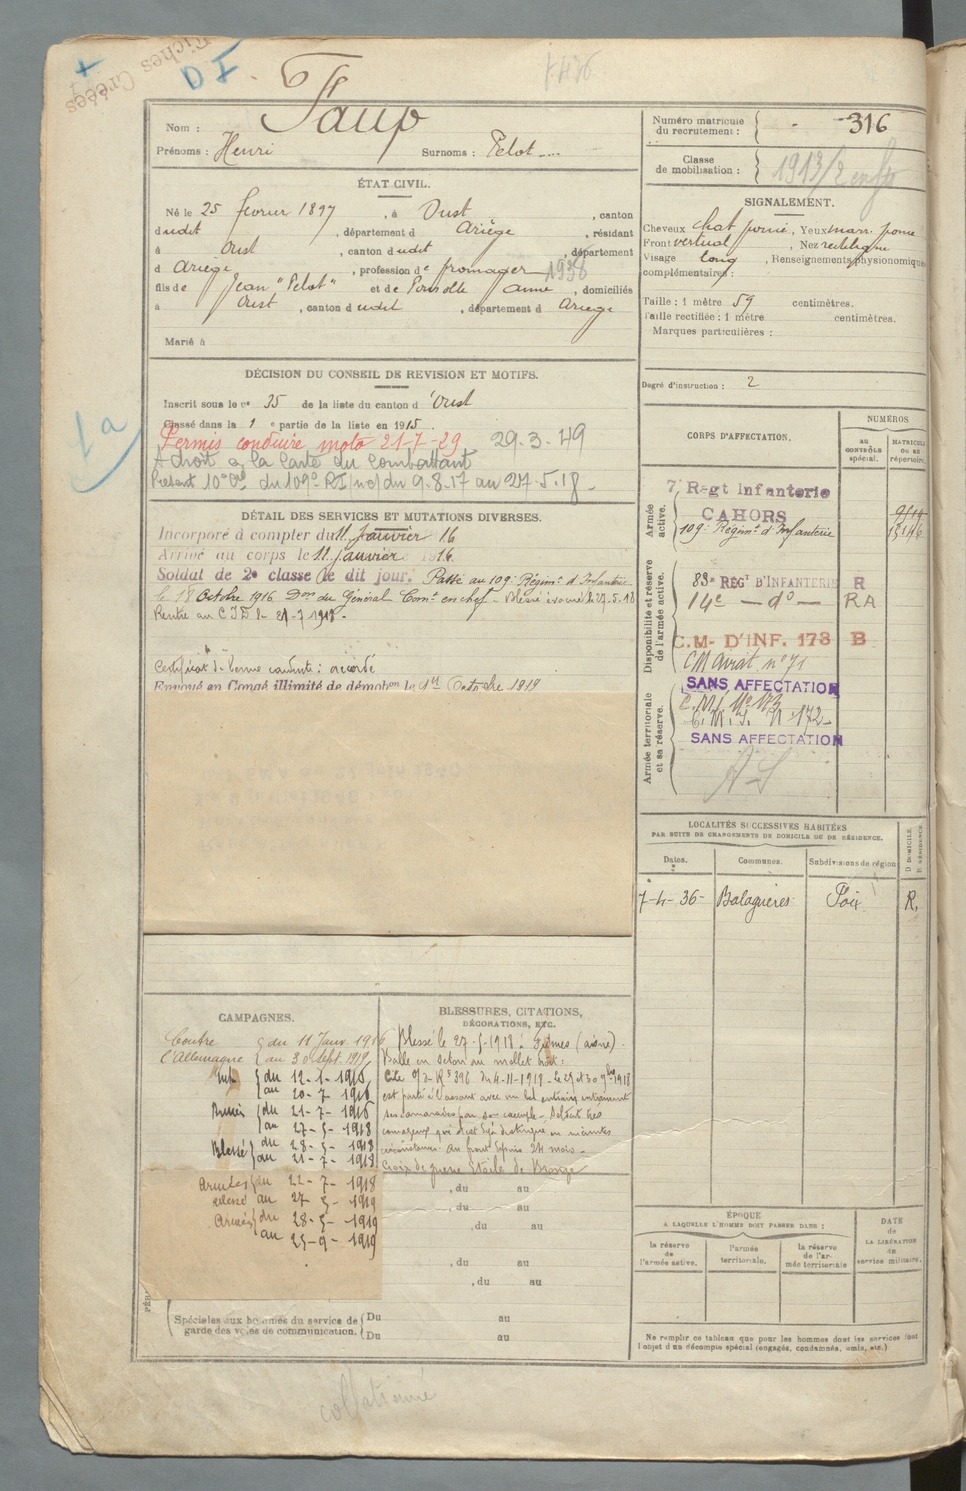 Fiches Créées
D I.
Nom : Faup
Prénoms : Henri Surnoms : Pelot
ÉTAT CIVIL.
Né le 25 février 1897, à Oust, canton
dudit, département d Ariège, résidant
à Oust, canton dudit, département
d Ariège, profession de fromager 1936
fils de Jean "Pelot" et de Anne, domiciliés
à Oust, canton dudit, département d Ariège
Marié à
DÉCISION DU CONSEIL DE REVISION ET MOTIFS.
Inscrit sous le no 35 de la liste du canton d'Oust
Classé dans la 1 e partie de la liste en 1915.
Permis conduire moto 21-7-29 29-3-49
A droit à la Carte du Combattant
Présent du 109e RI du 9.8.17 au 27.5.18
1a
DÉTAIL DES SERVICES ET MUTATIONS DIVERSES.
Incorporé à compter du 11 janvier 1916
Arrivé au corps le 11 janvier 1916
Soldat de 2e classe le dit jour. Passé au 109e Régimt d'Infanterie
le 18 Octobre 1916 Don du Général Comt en chef - Blessé évacué le 27.5.18
Rentré au C.I.D. le 21-7-1918.
Certificat de bonne conduite : accordé
Envoyé en Congé illimité de démobon le 1er Octobre 1919
CAMPAGNES.
Contre du 11 Janv. 1916
l'Allemagne au 30 Sept. 1919
Int. du 12-1-1916
au 20-7-1916
Armées du 21-7-1916
au 27-5-1918
Blessé du 28-5-1918
au 21-7-1918
Armées du 22-7-1918
au 27-5-1919
Armées du 28-5-1919
au 25-9-1919
BLESSURES, CITATIONS,
DÉCORATIONS, ETC.
Blessé le 27-5-1918 à Fismes
Balle en séton au mollet
Cité O/D R 396 du 4-11-1918
est parti à l'assaut avec un bel entrain entraînant
ses camarades par son exemple - Soldat très
courageux qui s'était déjà distingué en maintes
circonstances. Au front depuis 24 mois -
Croix de guerre Étoile de Bronze
, du au
, du au
, du au
, du au
, du au
Spéciales aux hommes du service de garde des voies de communication.
Du au
Du au
Numéro matricule du recrutement : 316
Classe de mobilisation : 1913/2
SIGNALEMENT.
Cheveux chat foncé, Yeux marr. foncé
Front vertical, Nez rectiligne
Visage long, Renseignements physionomiques
complémentaires :
Taille : 1 mètre 59 centimètres.
Taille rectifiée : 1 mètre centimètres.
Marques particulières :
Degré d'instruction : 2
CORPS D'AFFECTATION.
NUMÉROS
AU CONTRÔLE spécial.
MATRICULE OU AU répertoire.
Armée active.
7e Régt Infanterie
CAHORS
109e Régimt d'Infanterie
Disponibilité et réserve de l'armée active.
83e RÉGT D'INFANTERIE R
14e — do — RA
C.M. D'INF. 173 B
CM Aviat. no 71
SANS AFFECTATION
Armée territoriale et sa réserve.
C.M.I. No 173
C.M.I. N 172
SANS AFFECTATION
LOCALITÉS SUCCESSIVES HABITÉES
PAR SUITE DE CHANGEMENTS DE DOMICILE OU DE RÉSIDENCE.
Dates. Communes. Subdivisions de région D DOMICILE. R RÉSIDENCE.
7-4-36 Balaguères Foix R.
ÉPOQUE
A LAQUELLE L'HOMME DOIT PASSER DANS :
la réserve de l'armée active.
l'armée territoriale.
la réserve de l'armée territoriale
DATE de LA LIBÉRATION du service militaire.
Ne remplir ce tableau que pour les hommes dont les services font
l'objet d'un décompte spécial (engagés, condamnés, omis, etc.)
collationné